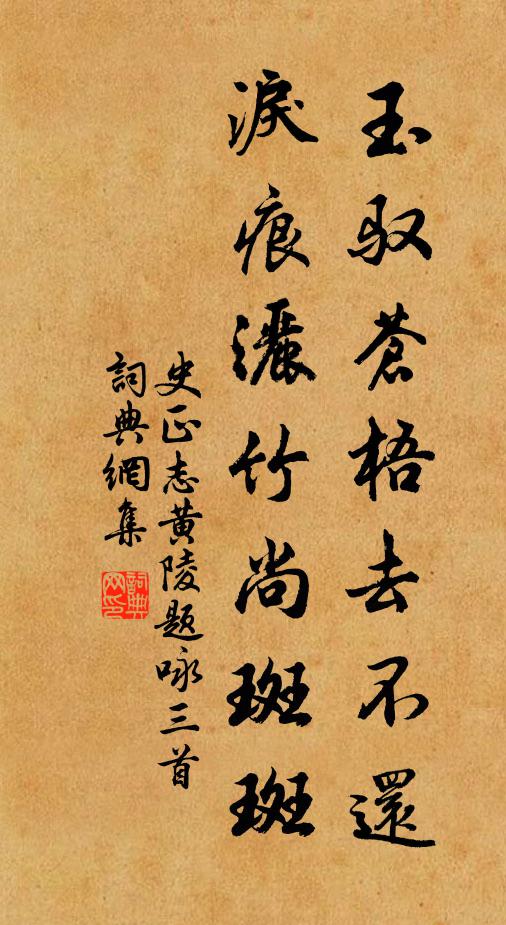 玉驭蒼梧去不還
淚痕灑竹尚斑斑
史正志黄陵题咏三首
詞典網集
詞典网印